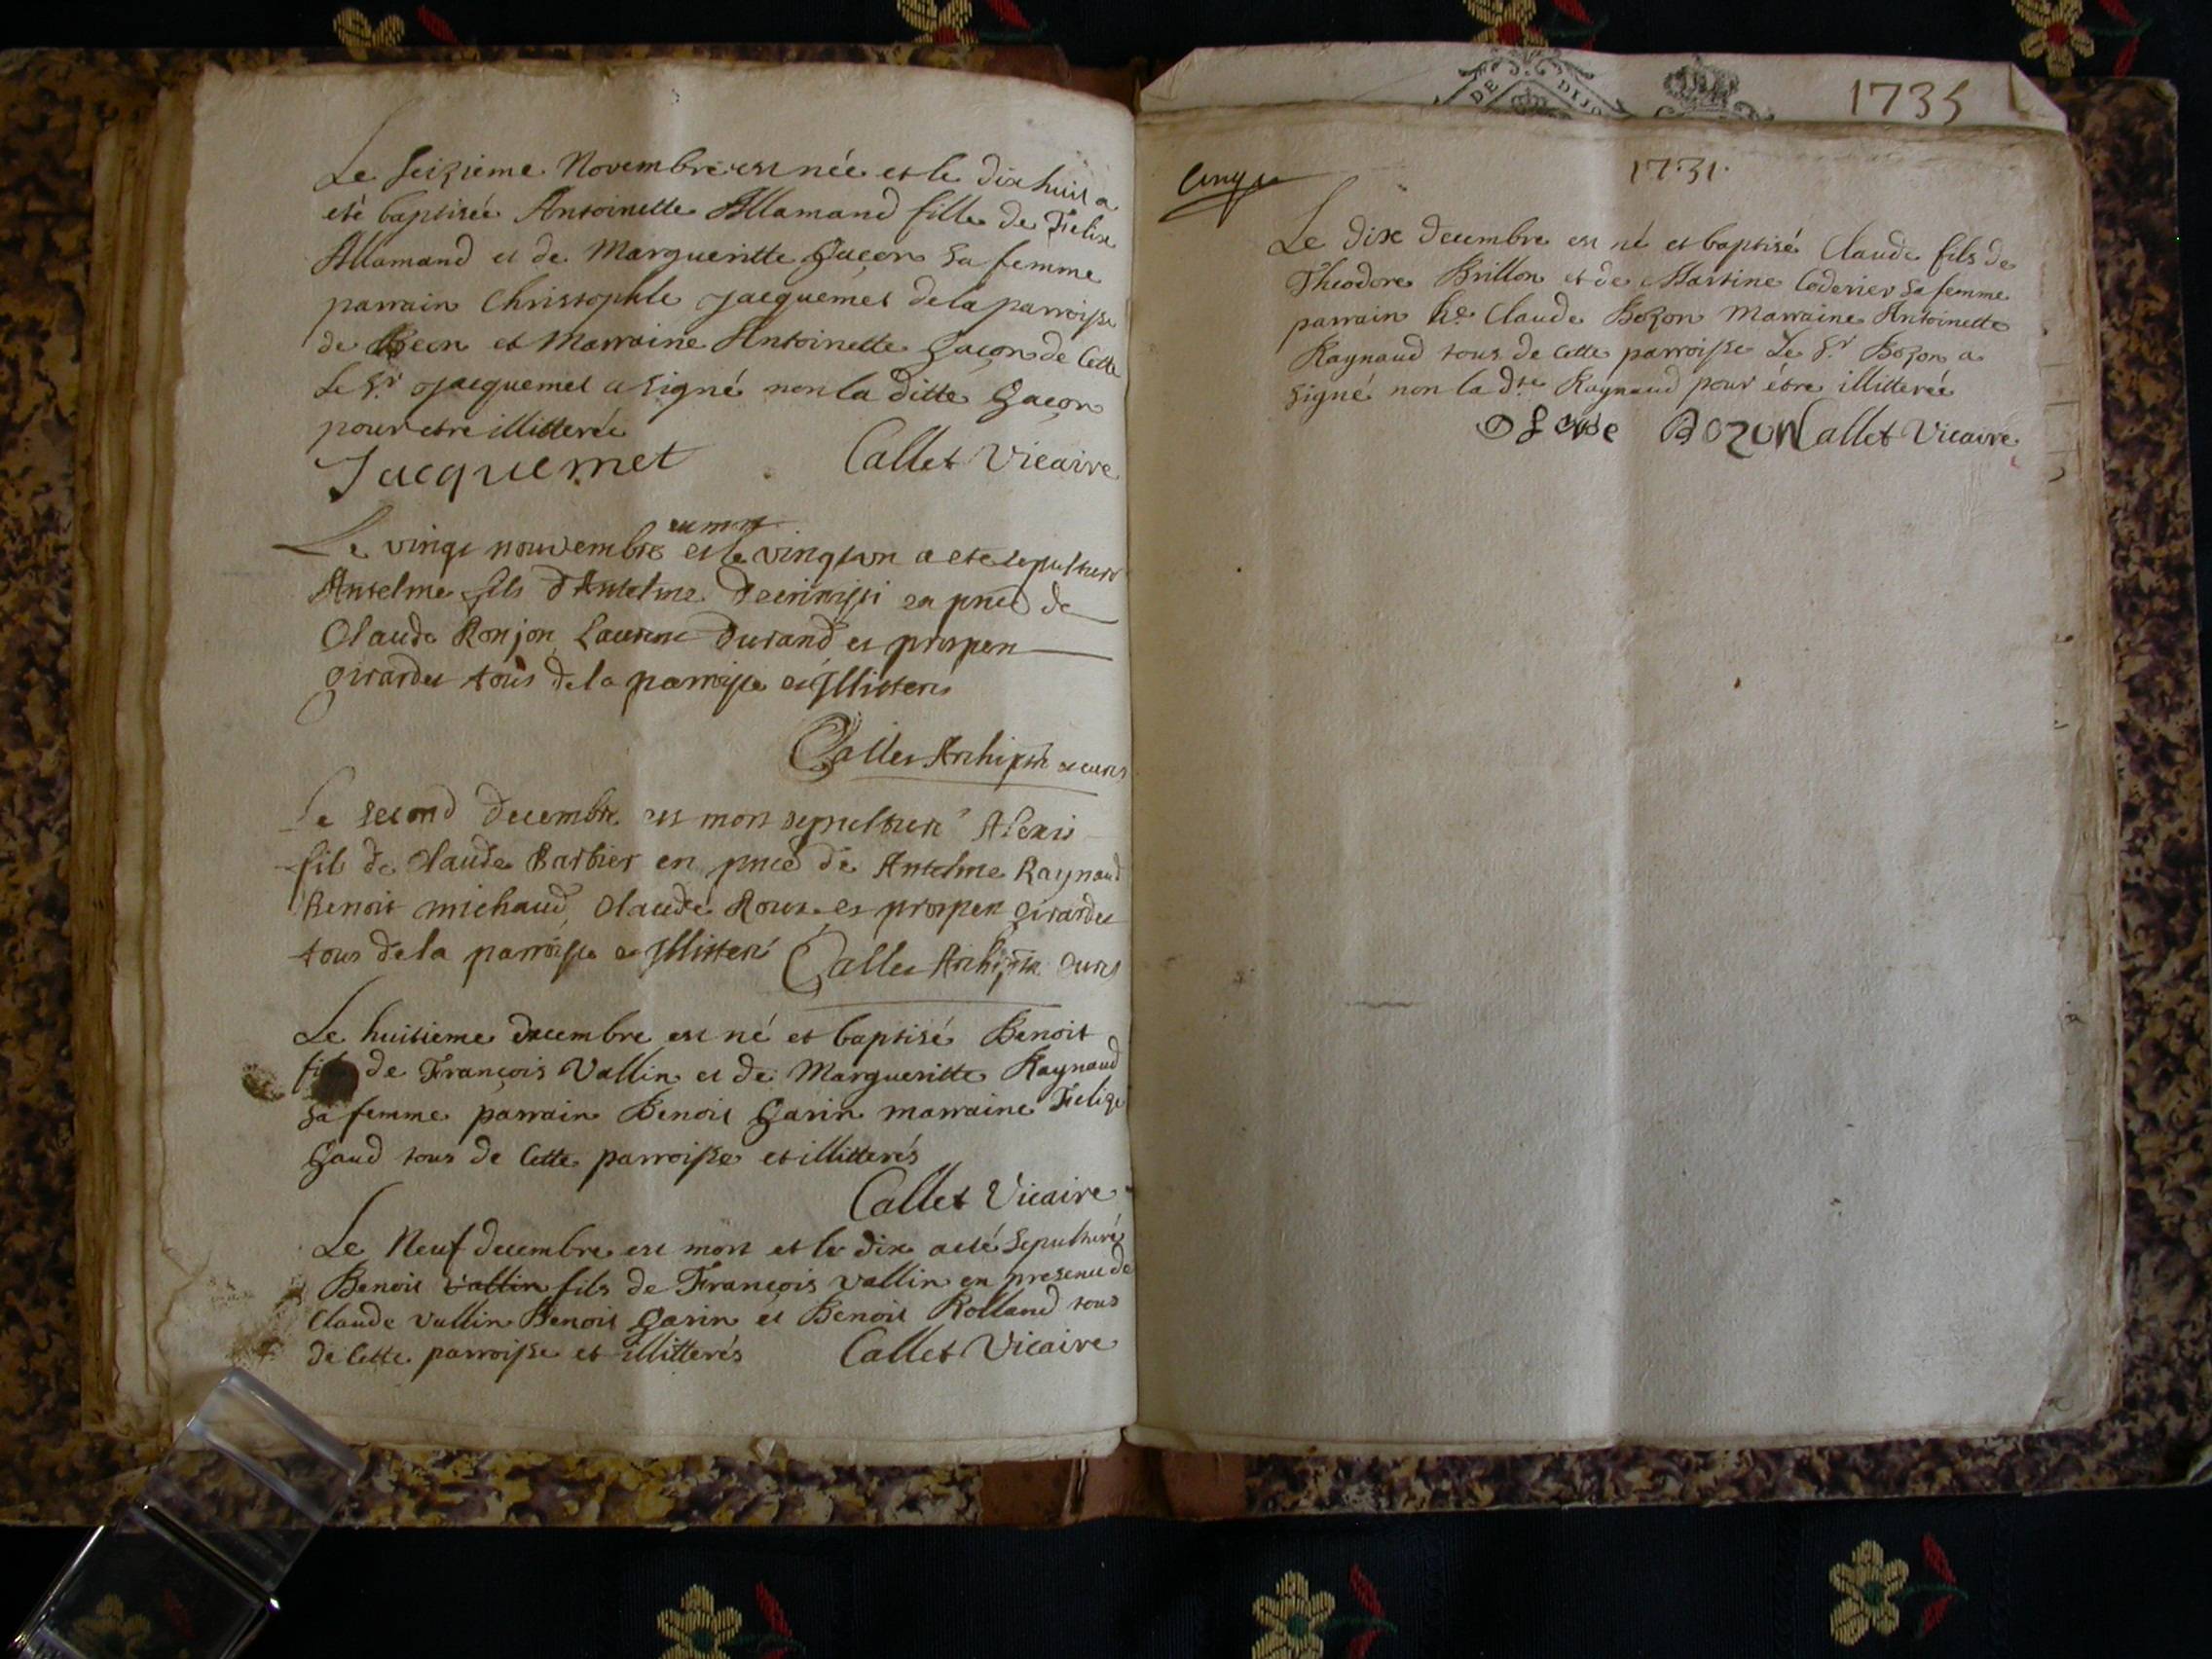 Le seizieme Novembre est née et le dix huit a
eté baptisée Antoinette Allamand fille de Felix
Allamand et de Margueritte Gaçon sa femme
parrain Christophle Jacquemet de la parroisse
de et Marraine Antoinette Gaçon de Cette
Le Sr Jacquemet a signé non la ditte Gaçon
pour etre illitterée
Jacquemet Callet Vicaire
Le vingt nouvembre et le vingt un a ete sepulturé
Antelme fils d'Antelme en pnce de
Claude Ronjon Laurent Durand et prosper
girardet tous de la parroisse et Illitteres
Callet Archiptre et curé
Le second decembre est mort sepulturé Alexis
fils de Claude Barbier en pnce de Antelme Raynaud
Benoit michaud, Claude Roux et prosper girardet
tous de la parroisse et Illitteré Callet Archiptre curé
Le huitieme decembre est né et baptisé Benoit
fils de François Vallin et de Margueritte Raynaud
sa femme parrain Benoit Garin marraine
Gaud tous de Cette parroisse et illitterés
Callet Vicaire
Le Neuf decembre est mort et le dix a eté sepulturé
Benoit Vallin fils de François Vallin en presence de
Claude Vallin Benoit Garin et Benoit Rolland tous
de Cette parroisse et illitterés Callet Vicaire
DE DIJO
1735
1731.
Le dix decembre est né et baptisé Claude fils de
Theodore Brillon et de Martine Coderier sa femme
parrain Claude Bozon Marraine Antoinette
Raynaud tous de Cette parroisse Le Sr Bozon a
signé non la dte Raynaud pour être illitterée
Bozon Callet Vicaire